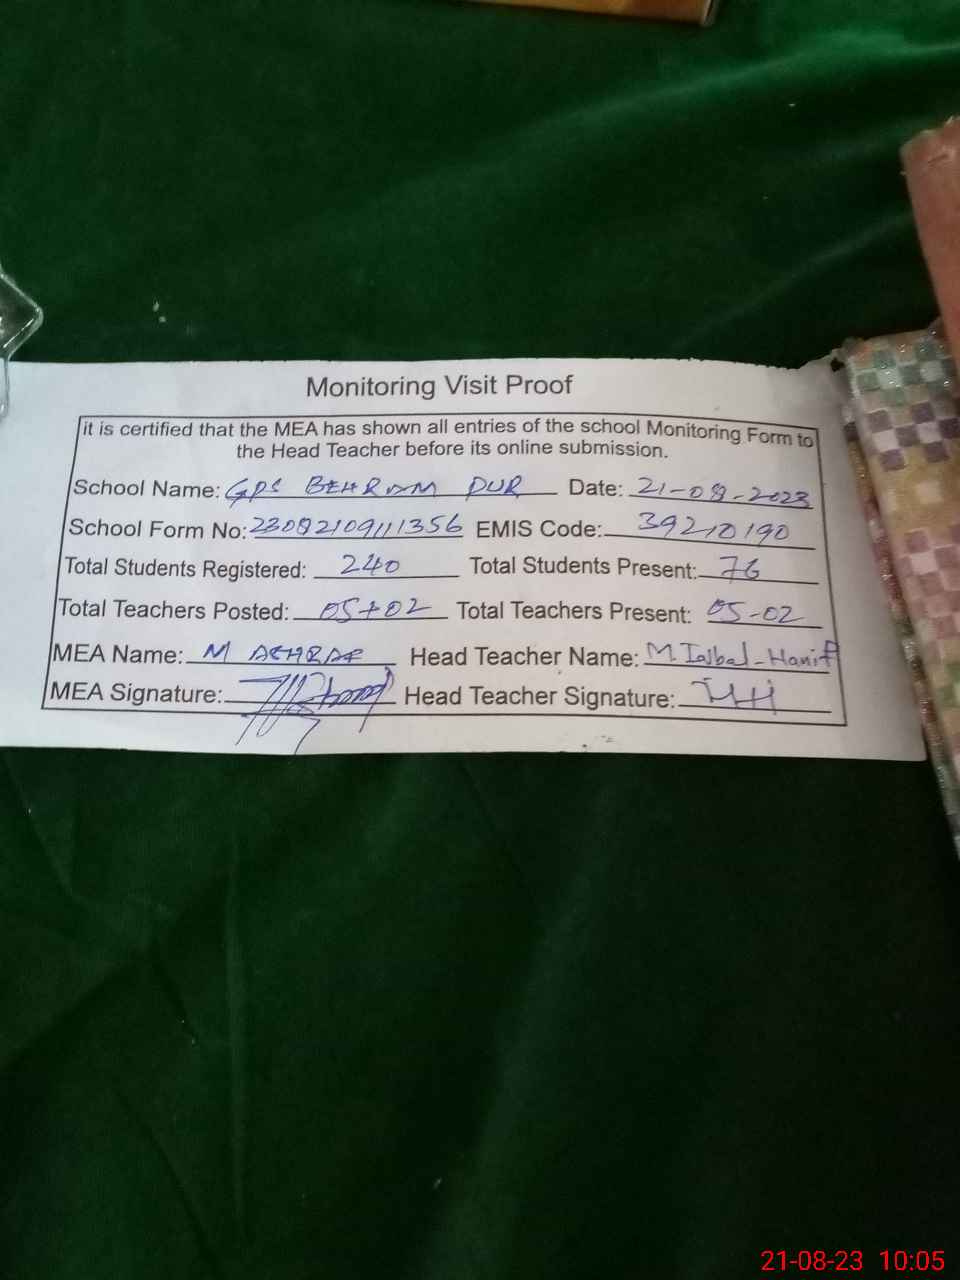 Monitoring Visit Proof
it is certified that the MEA has shown all entries of the school Monitoring Form to
the Head Teacher before its online submission.
School Name: GPS BEHRAM PUR Date: 21-08-2023
School Form No: 23082109111356 EMIS Code: 39210190
Total Students Registered: 240 Total Students Present: 76
Total Teachers Posted: 05+02 Total Teachers Present: 05-02
MEA Name: M ASHRAF Head Teacher Name: M Iqbal-Hanif
MEA Signature: Head Teacher Signature:
21-08-23 10:05